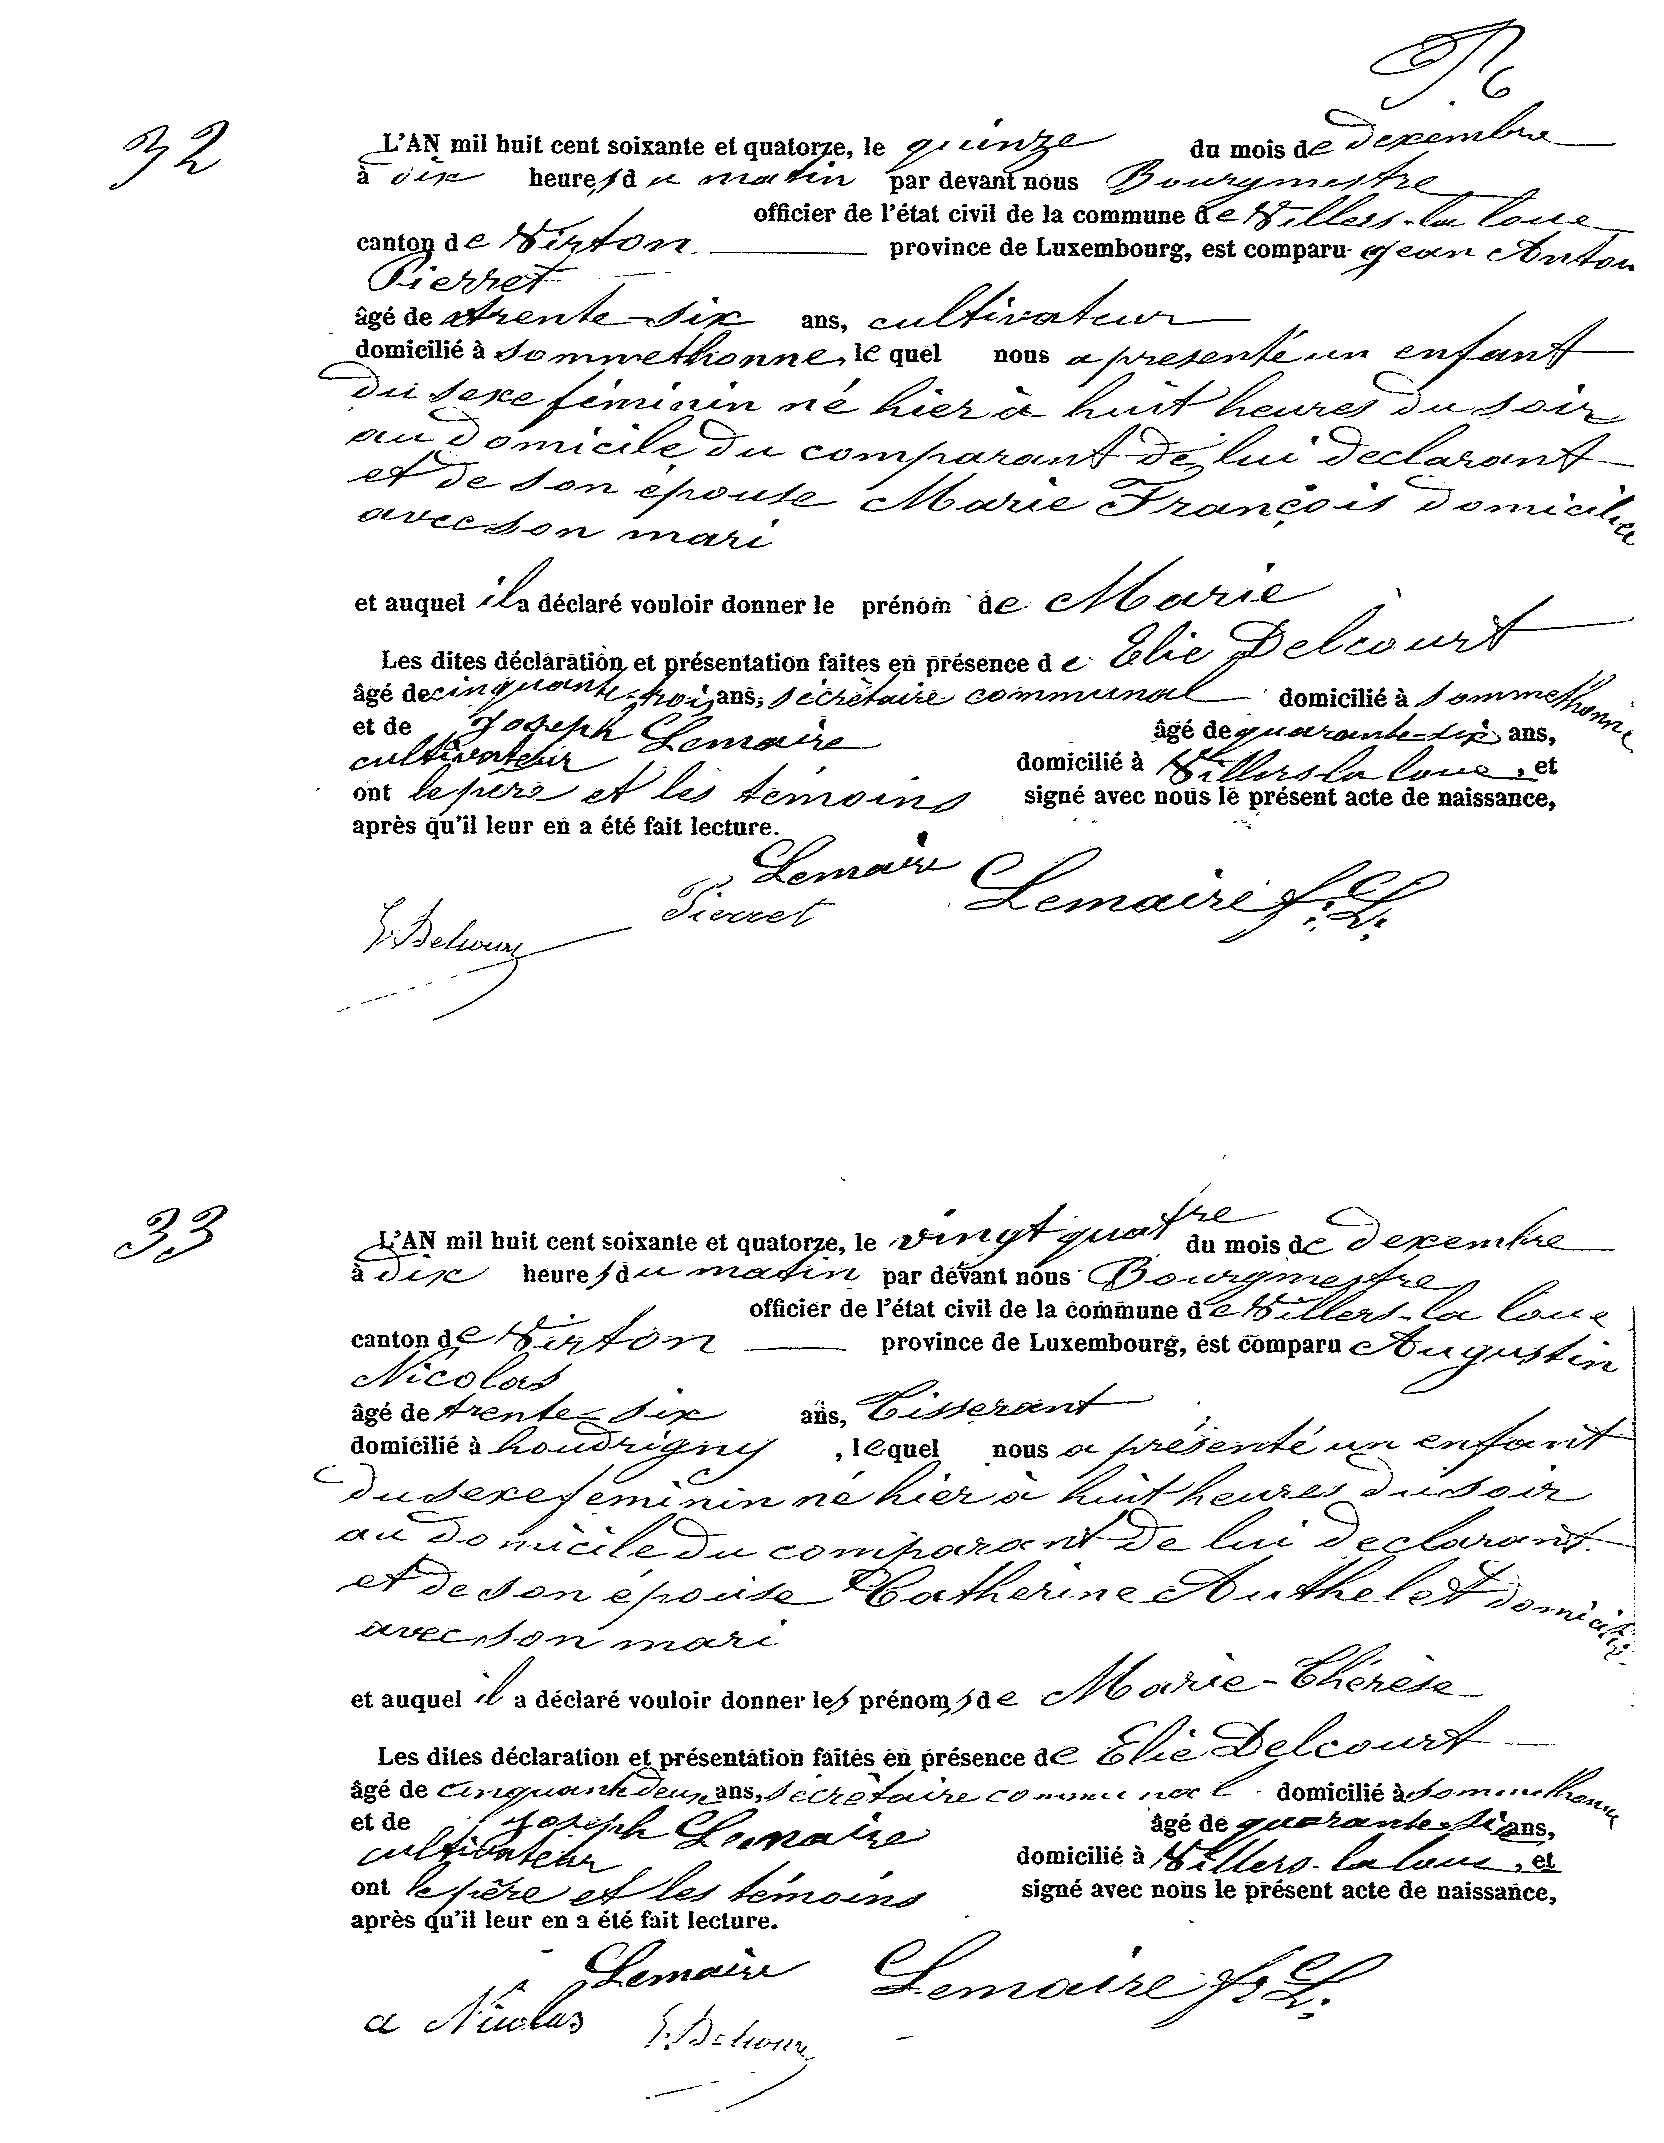 32
L'AN mil huit cent soixante et quatorze, le quinze du mois de decembre
à dix heures du matin par devant nous Bourgmestre
officier de l'état civil de la commune de Villers-la loue
canton de Virton province de Luxembourg, est comparu Jean Anton
Pierret
âgé de trente-six ans, cultivateur
domicilié à Sommethonne, le quel nous a presenté un enfant
du sexe féminin né hier à huit heures du soir
au domicile du comparant de lui declarant
et de son épouse Marie François domiciliée
avec son mari
et auquel il a déclaré vouloir donner le prénom de Marie
Les dites déclaration et présentation faites en présence de Elie Delcourt
âgé de cinquante-trois ans, sécrétaire communal domicilié à Sommethonne
et de Joseph Lemaire âgé de quarante-six ans,
cultivateur domicilié à Villers la loue, et
ont le père et les témoins signé avec nous le présent acte de naissance,
après qu'il leur en a été fait lecture.
Lemaire
Pierret Lemaire J. L.
E. Delcourt
33
L'AN mil huit cent soixante et quatorze, le vingt quatre du mois de decembre
à dix heures du matin par devant nous Bourgmestre
officier de l'état civil de la commune de Villers-la loue
canton de Virton province de Luxembourg, est comparu Augustin
Nicolas
âgé de trente-six ans, Tisserant
domicilié à houdrigny, lequel nous a présenté un enfant
du sexe feminin né hier à huit heures du soir
au domicile du comparant de lui declarant
et de son épouse Catherine Authelet domiciliée
avec son mari
et auquel il a déclaré vouloir donner les prénoms de Marie-Thérèse
Les dites déclaration et présentation faites en présence de Elie Delcourt
âgé de cinquante deux ans, sécrétaire communal domicilié à Sommethonne
et de Joseph Lemaire âgé de quarante-six ans,
cultivateur domicilié à Villers-la loue, et
ont le père et les témoins signé avec nous le présent acte de naissance,
après qu'il leur en a été fait lecture.
Lemaire Lemaire J. L.
a Nicolas E. Delcourt